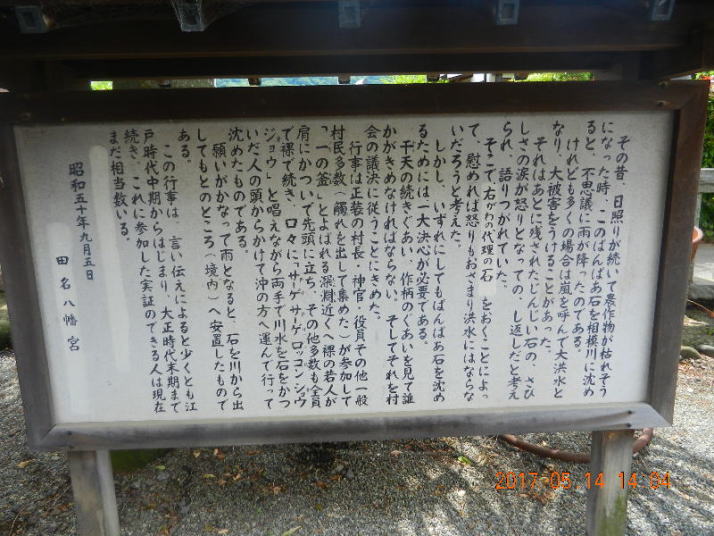 その昔、日照りが続いて農作物が枯れそう
になった時、このばんばあ石を相模川に沈め
ると、不思議に雨が降ったのである。
けれども多くの場合は嵐を呼んで大洪水と
なり、大被害をうけることがあった。
それはあとに残されたじんじい石の、さび
しさの涙が怒りとなっての、し返しだと考え
られ、語りつがれていた。
そこで、右がわの代理の石　をおくことによっ
て、慰めれば怒りもおさまり洪水にはならな
いだろうと考えた。
しかし、いずれにしてもばんばあ石を沈め
るためには一大決心が必要である。
干天の続きぐあい、作柄のぐあいを見て誰
かがきめなければならない。そしてそれを村
会の議決に従うことにきめた。
行事は正装の村長・神官・役員その他一般
村民多数（触れを出して集めた）が参加して
「一の釜」とよばれる深淵近くへ裸の若人が
肩にかついで先頭に立ち、その他多数も全員
で裸で続き、口々に「サーゲサーゲロッコンショウ
ジョウ」と唱えながら両手で川水を石をかつ
いだ人の頭からかけて沖の方へ運んで行って
沈めたものである。
願いがかなって雨となると、石を川から出
してもとのところ（境内）へ安置したもので
ある。
この行事は、言い伝えによると少くとも江
戸時代中期からはじまり、大正時代末期まで
続き、これに参加した実証のできる人は現在
まだ相当数いる。
昭和五十年九月五日
田名八幡宮
2017-05-14 14:04